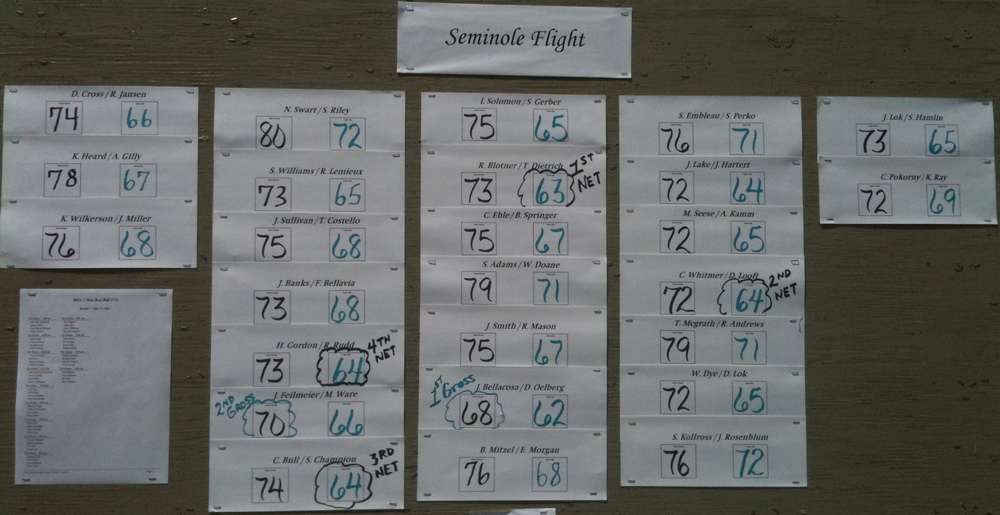 Seminole Flight
D. Cross / R. Jansen
74 66
K. Heard / A. Gilly
78 67
K. Wilkerson / J. Miller
76 68
N. Swart / S. Riley
80 72
S. Williams / R. Lemieux
73 65
J. Sullivan / T. Costello
75 68
J. Banks / F. Bellavia
73 68
H. Gordon / R. Rudd
73 64 4TH NET
J. Feilmeier / M. Ware
2ND GROSS 70 66
C. Bull / S. Champion
74 64 3RD NET
I. Solomon / S. Gerber
75 65
R. Blotner / T. Dietrich
73 63 1ST NET
C. Eble / B. Springer
75 67
S. Adams / W. Doane
79 71
J. Smith / R. Mason
75 67
J. Bellacosa / D. Oelberg
1ST GROSS 68 62
B. Mitzel / E. Morgan
76 68
S. Embleau / S. Perko
76 71
J. Lake / J. Hartert
72 64
M. Seese / A. Kamm
72 65
C. Whitmer / D. Looft
72 64 2ND NET
T. Mcgrath / R. Andrews
79 71
W. Dye / D. Lok
72 65
S. Kollross / J. Rosenblum
76 72
J. Lok / S. Hamlin
73 65
C. Pokorny / K. Ray
72 69